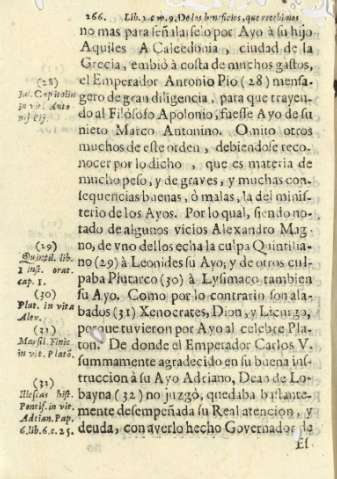 266. Lib. 2. c. m. 9. De los beneficios, que recebimos
no mas para señalarselo por Ayo à su hijo
Aquiles A Calcedonia, ciudad de la
Grecia, embiò à costa de muchos gastos,
(28)
Jul. Capitolin
in vit. Anto
nij Pij.
el Emperador Antonio Pio (28) mensa-
gero de gran diligencia, para que trayen-
do al Filosofo Apolonio, fuesse Ayo de su
nieto Marco Antonino. Omito otros
muchos de este orden, debiendose reco-
nocer por lo dicho, que es materia de
mucho peso, y de graves, y muchas con-
sequencias buenas, ò malas, la del minis-
terio de los Ayos. Por lo qual, siendo no-
tado de algunos vicios Alexandro Mag-
(29)
Quintil. lib.
1 inst. orat.
cap. 1.
(30)
Plut. in vita
Alex.
(31)
Marsil. Finic.
in vit. Platō.
no, de uno dellos echa la culpa Quintilia-
no (29) à Leonides su Ayo; y de otros cul-
paba Plutarco (30) à Lysimaco tambien
su Ayo. Como por lo contrario son ala-
bados (31) Xenocrates, Dion, y Licurgo,
porque tuvieron por Ayo al celebre Pla-
ton. De donde el Emperador Carlos V.
summamente agradecido en su buena ins-
(31)
Illescas hist.
Pontif. in vit.
Adrian. Pap.
6. lib. 6. c. 25.
truccion à su Ayo Adriano, Dean de Lo-
bayna (32) no juzgò, quedaba bastante-
mente desempeñada su Real atencion, y
deuda, con averlo hecho Governador de
Es-